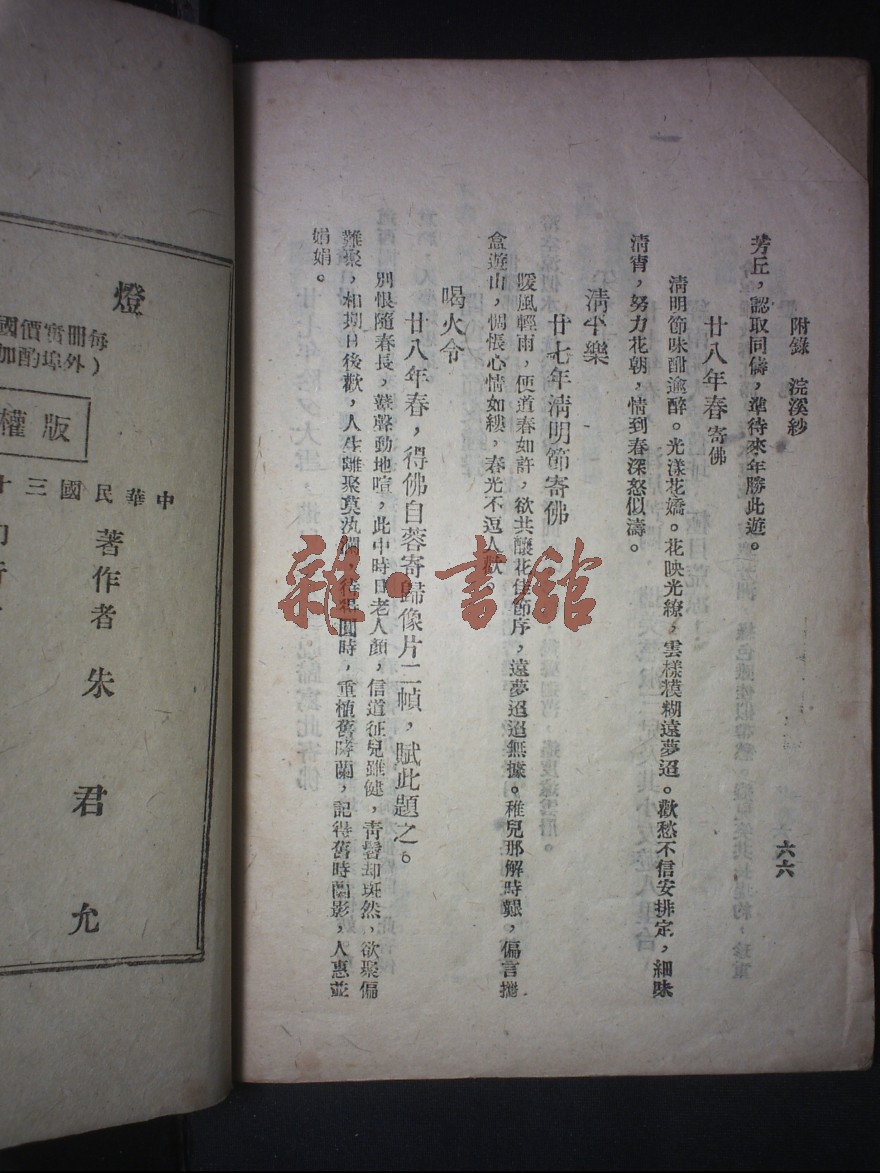 附錄　浣溪紗
六六
芳丘，認取同儔，準待來年勝此遊。
廿八年春寄佛
清明節味酣逾醉。光漾花嬌。花映光繚，雲樣糢糊遠夢迢。歡愁不信安排定，細味
清宵，努力花朝，情到春深怒似濤。
清平樂
廿七年清明節寄佛
暖風輕雨，便道春如許，欲共釀花佳節序，遠夢迢迢無據。稚兒那解時艱，偏言攜
盒遊山，惆悵心情如縷，春光不逗人歡。
喝火令
廿八年春，得佛自蓉寄歸像片二幀，賦此題之。
別恨隨春長，鼙聲動地喧，此中時日老人顏，信道征兒雖健，青鬢却斑然，欲聚偏
難聚，相期日後歡，人生離聚莫汍瀾，待得圓時，重植舊時蘭，記得舊時蘭影，人蕙並
娟娟。
雜·書館
燈
每冊實價國
（外埠酌加
版權
中華民國三十
著作者　朱君允